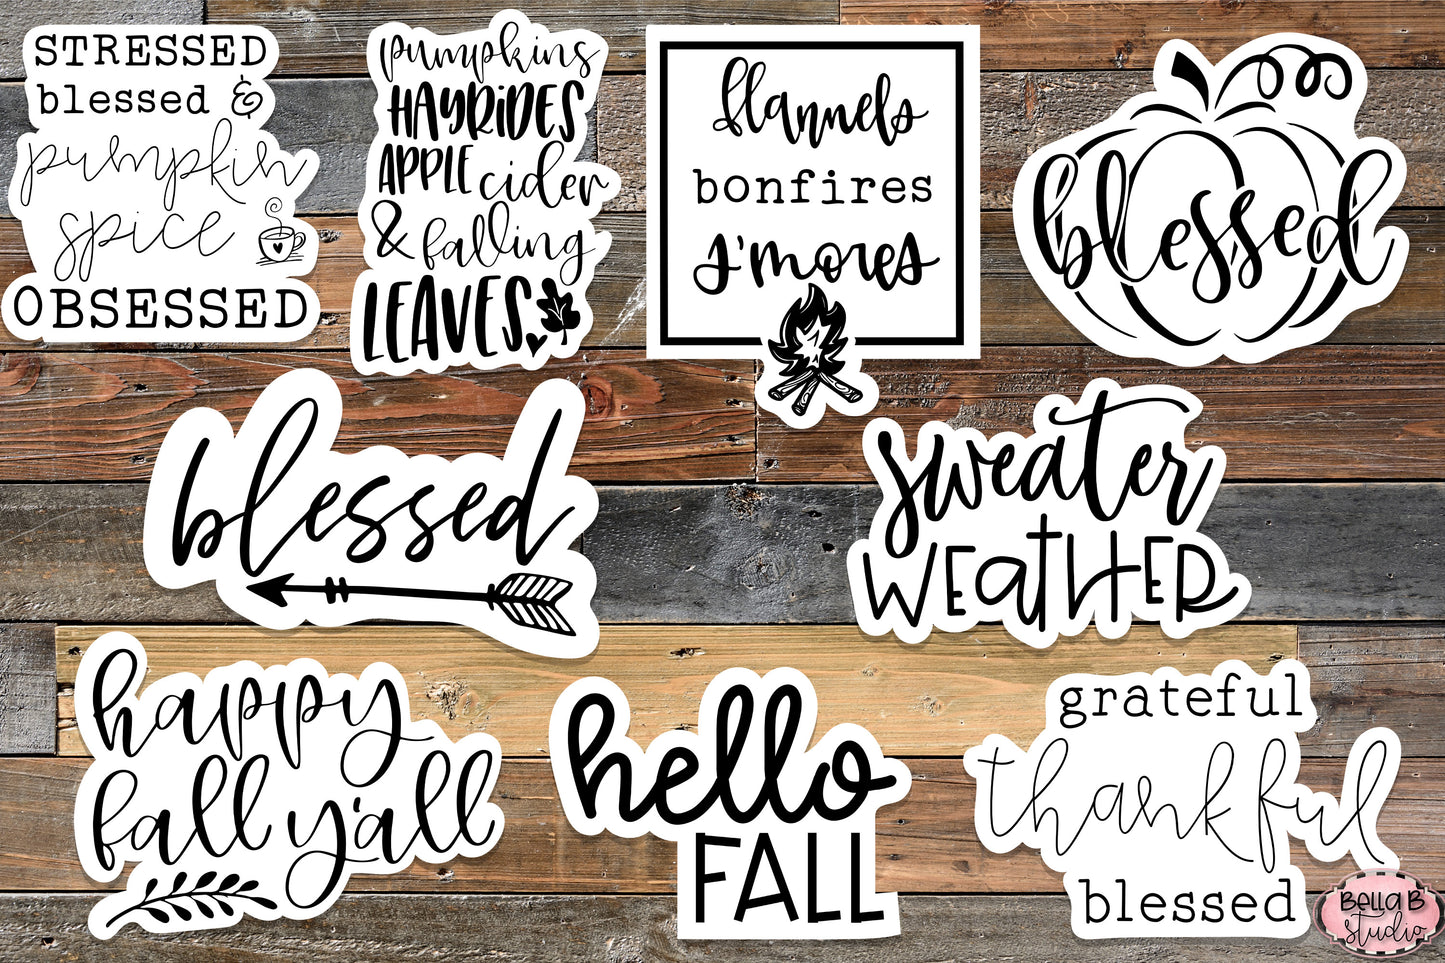 STRESSED
blessed &
pumpkin
spice
OBSESSED
pumpkins
HAYRIDES
APPLE cider
& falling
LEAVES
flannels
bonfires
s'mores
blessed
blessed
sweater
WEATHER
happy
fall y'all
hello
FALL
grateful
thankful
blessed
Bella B
studio